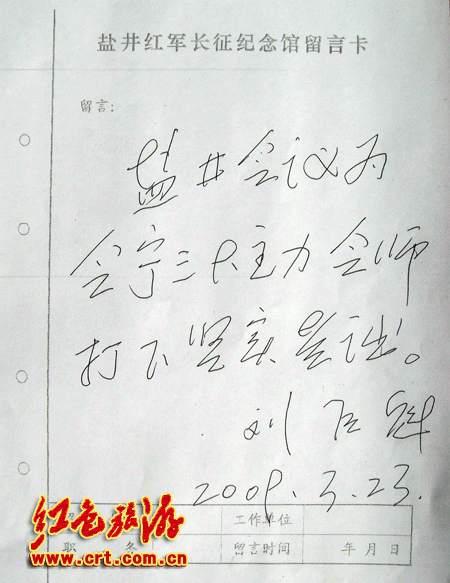 盐井红军长征纪念馆留言卡
留言：
盐井会议为
会宁三大主力会师
打下坚实基础。
刘
2009.3.23.
工作单位
职 务
留言时间 年 月 日
红色旅游
www.crt.com.cn